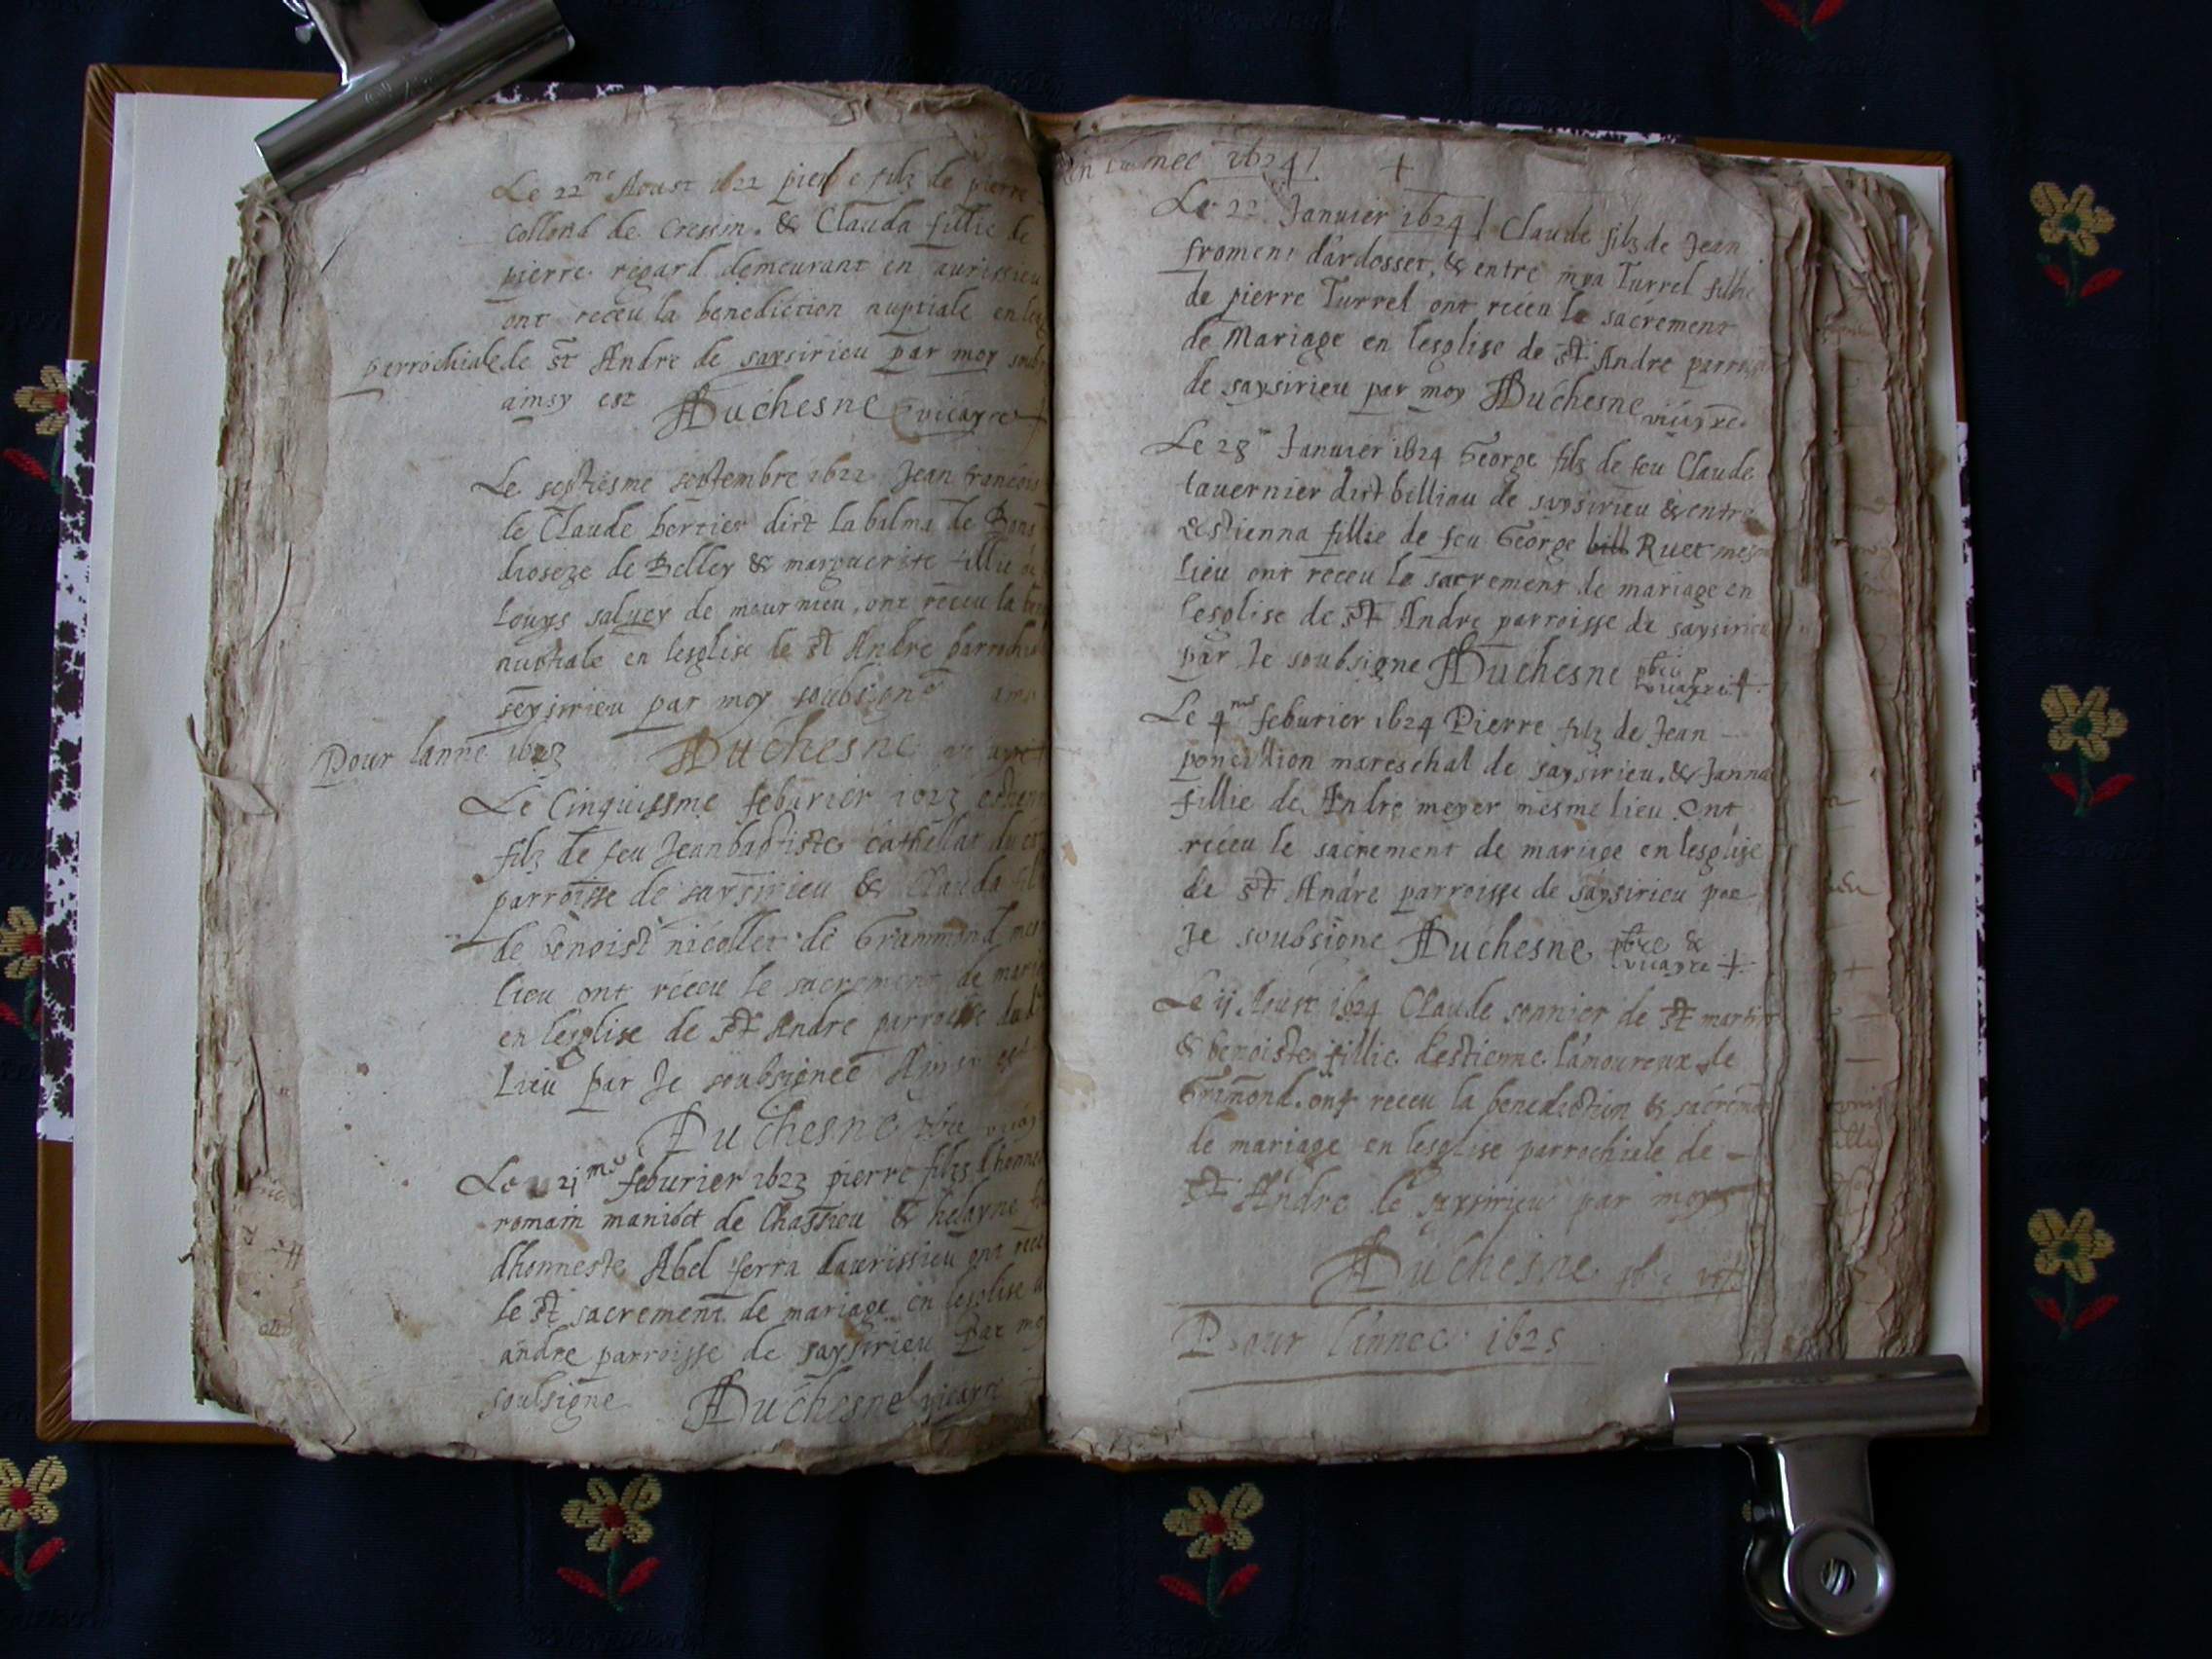 Le 22me Aoust 1622 pierre filz de pierre
Collond de Cressin. & Clauda fillie de
pierre regard demeurant en aurissieu
ont receu la benediction nuptiale en
perrochiale de st Andre de saysirieu par moy
ainsy est ADuchesne vicayre +
Le septiesme septembre 1622 Jean francois
de Claude bertier dict la balma de Bons
dioseze de Belley & marguerite fillie
Louys saluey de meurnieu, ont receu la
nuptiale en lesglise de st Andre parrochia
seysirieu par moy soubsigne
Pour lanne 1623 ADuchesne
Le Cinquiesme feburier 1623
filz de feu Jean baptiste Cathellat
parroisse de saysirieu & Clauda
de benoist nicollet de Grammond
lieu ont receu le sacrement de
en lesglise de st Andre parroisse
Lieu par Je soubsignee Ainsy est
Duchesne
Le 21me feburier 1623 pierre filz dhonne
romain maniôct de Chassieu & helayne
dhonneste Abel serra daurissieu ont
le st sacrement de mariage en lesglise
andre parroisse de saysirieu Par
soubsigne ADuchesne vicayre
1624 +
Le 22 Januier 1624 Claude filz de Jean
froment dardosset, & entre mya Turrel fillie
de pierre Turrel ont receu le sacrement
de Mariage en lesglise de st Andre
de saysirieu par moy ADuchesne
Le 28 Januier 1624 George filz de feu Claude
tauernier dict billiau de saysirieu & entre
Estienna fillie de feu George bill Ruet
lieu ont receu le sacrement de mariage en
lesglise de st Andre parroisse de saysirieu
par Je soubsigne ADuchesne
Le 4me feburier 1624 Pierre filz de Jean
poncillion mareschal de saysirieu. & Janna
fillie de Andre meyer mesme lieu ont
receu le sacrement de mariage en lesglise
de st Andre parroisse de saysirieu par
Je soubsigne ADuchesne pbre & vicayre +
Le 11 Aoust 1624 Claude sonnier de st martin
& benoiste fillie destienne lamoureux de
Grimond. ont receu la benediction & sacrement
de mariage en lesglise parrochiale de
st Andre de saysirieu par moy
ADuchesne
Pour lannee 1625